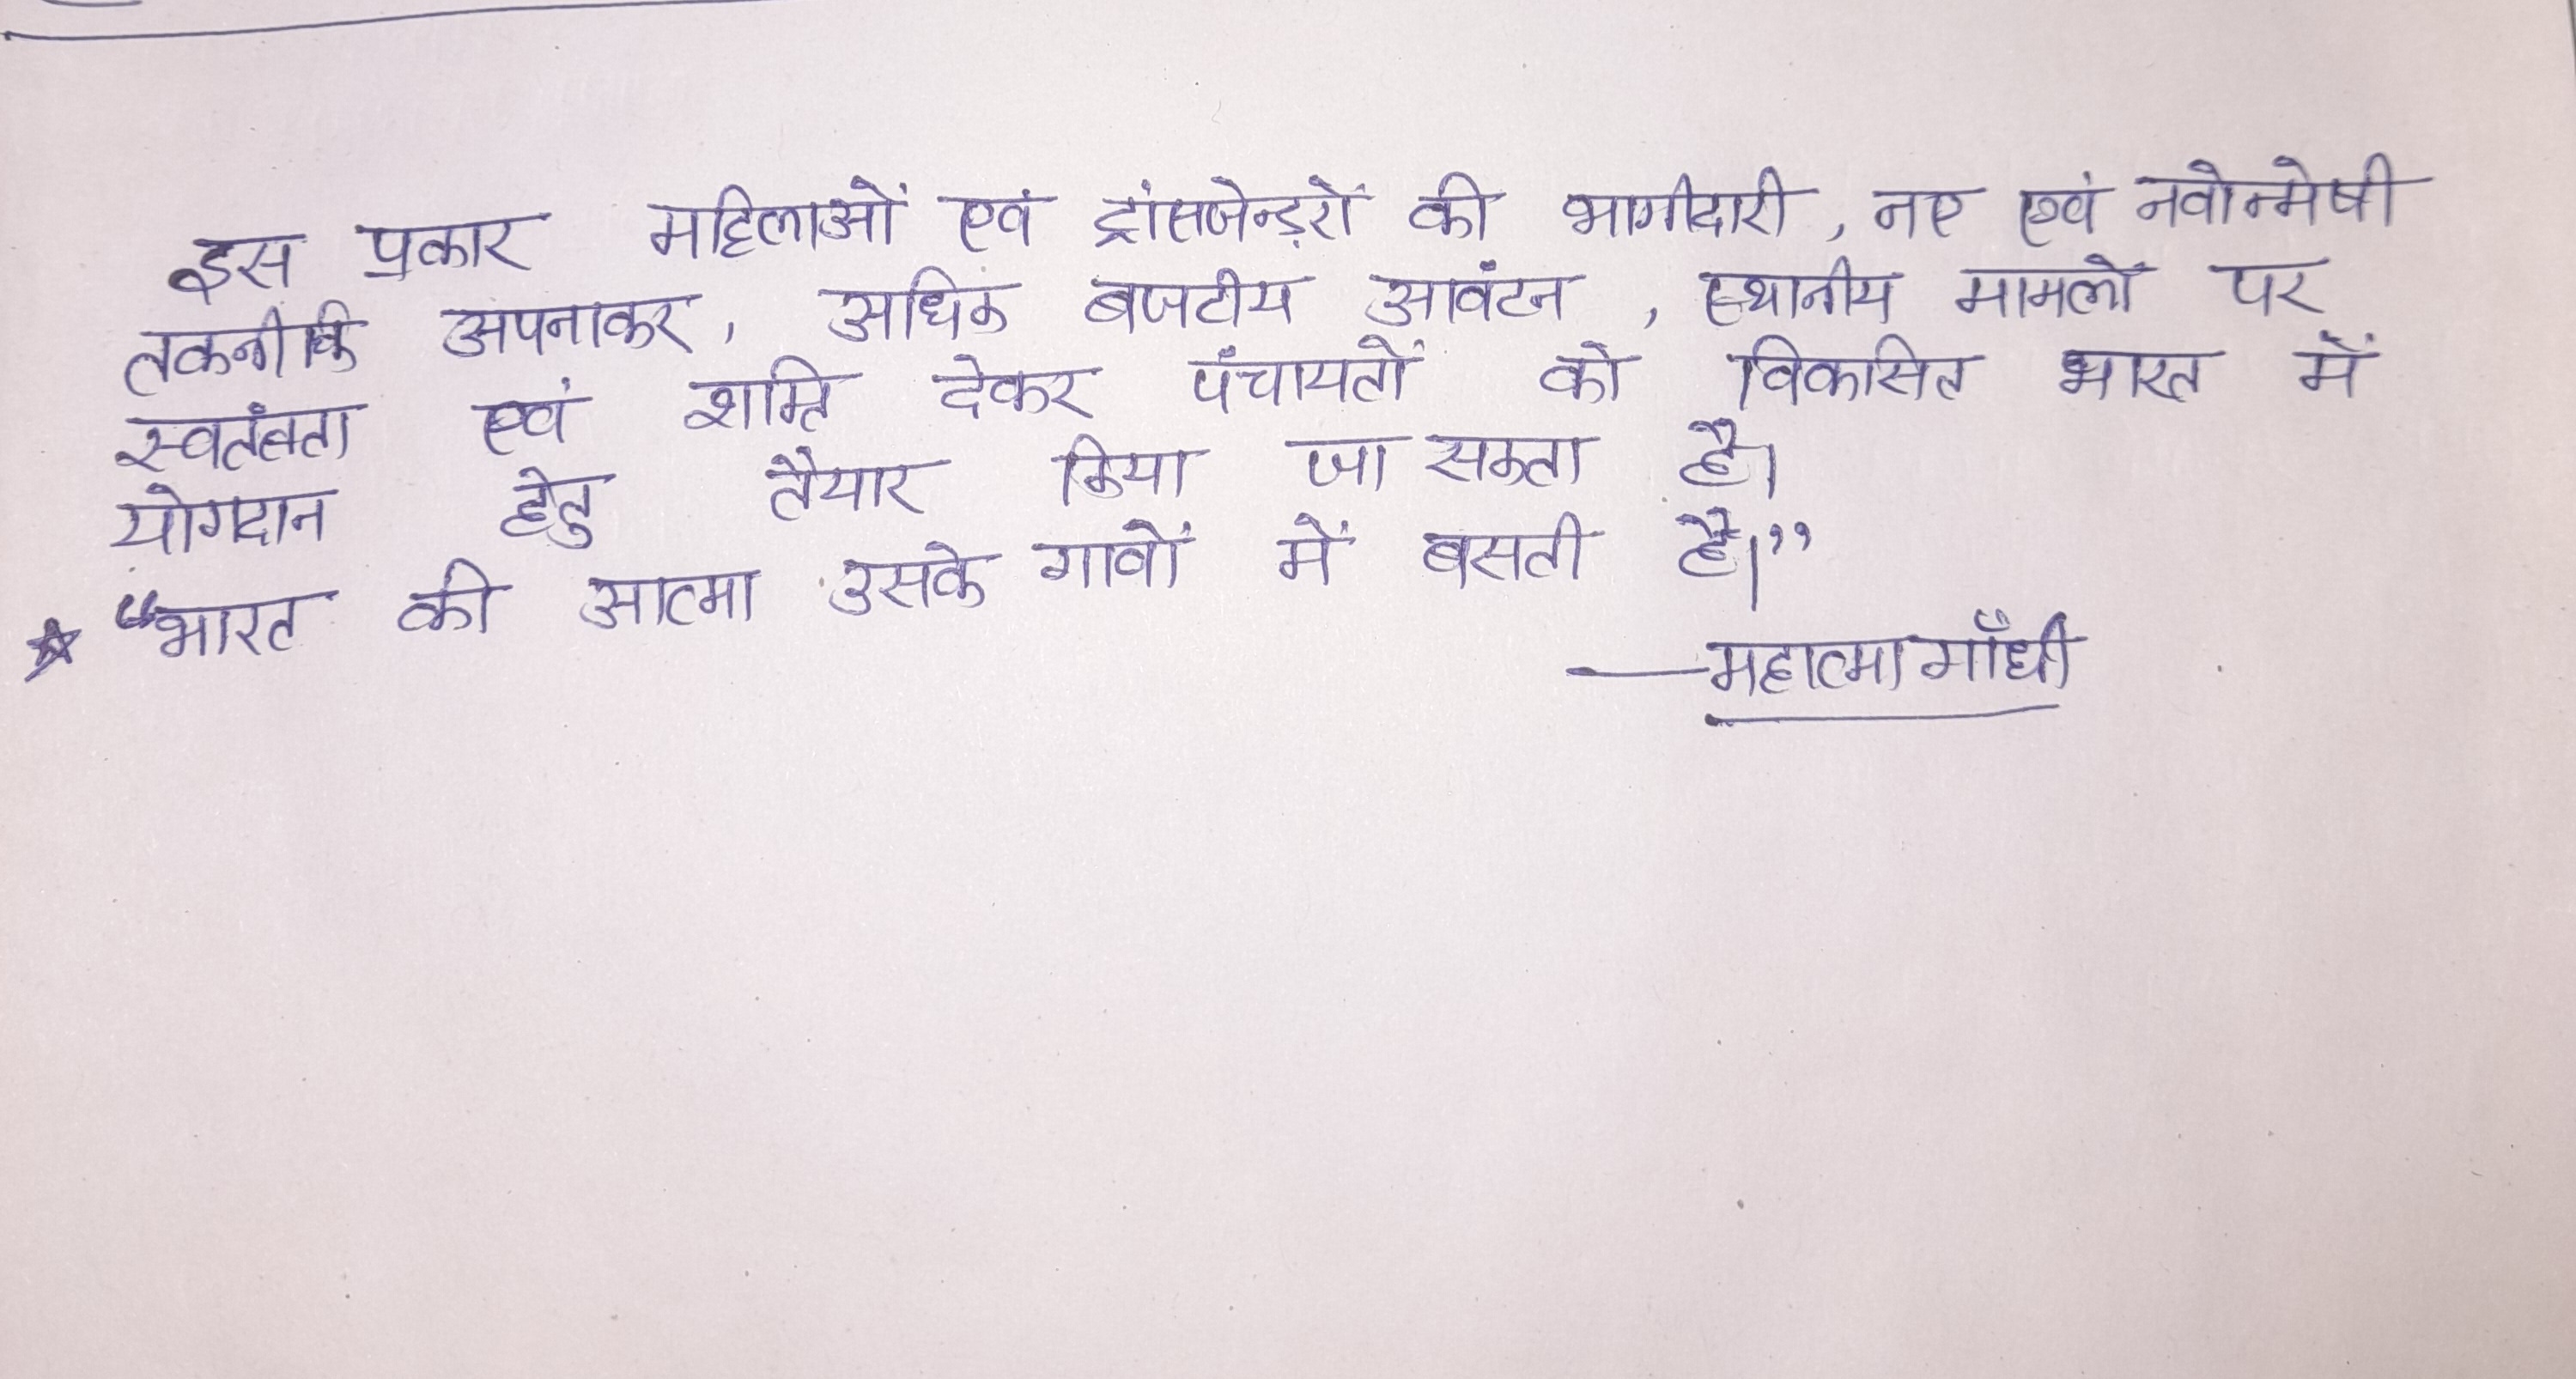 इस प्रकार महिलाओं एवं ट्रांसजेन्ड़रों की भागीदारी, नए एवं नवोन्मेषी
तकनीकि अपनाकर, अधिक बजटीय आवंटन, स्थानीय मामलों पर
स्वतंत्रता एवं शक्ति देकर पंचायतों को विकासित भारत में
योगदान हेतु तैयार किया जा सकता है।
☆ “भारत की आत्मा उसके गावों में बसती है।”
—महात्मा गाँधी